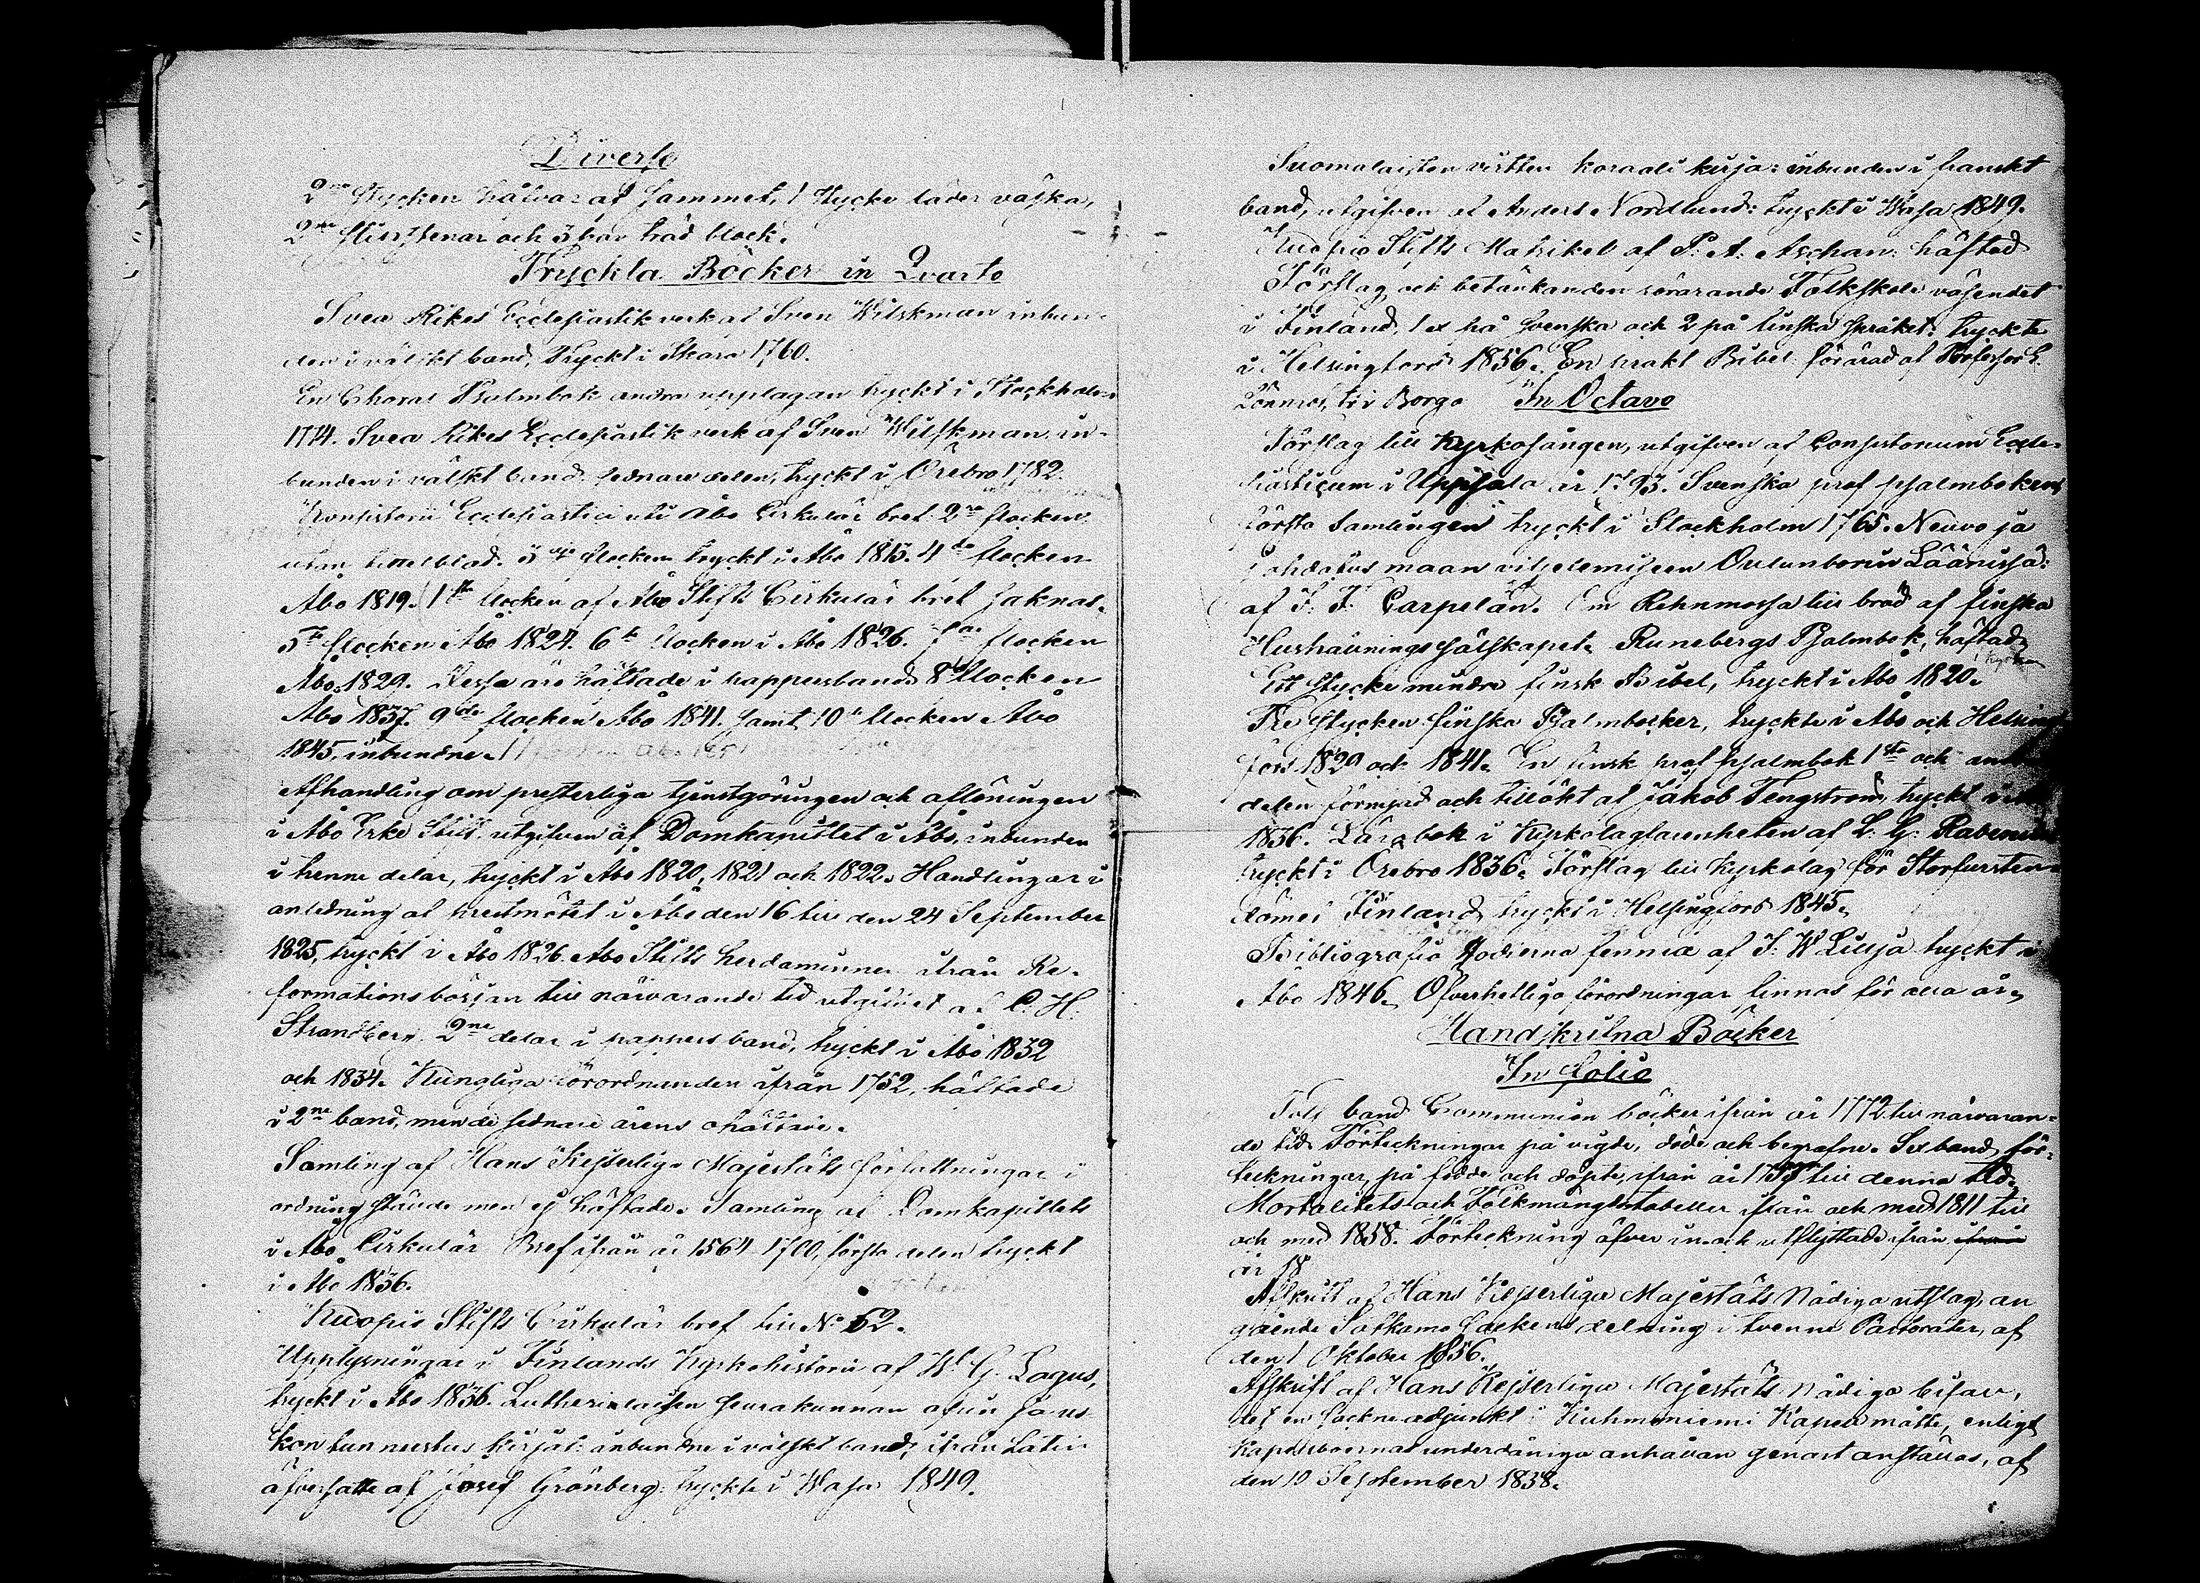 Diverse
2ne stycken håfvar af sammet, 1 stycke läder väska,
2ne och 3 par träd block.
Tryckta Böcker in Qvarto
Svea Rikes Ecclesiastik verk af Sven Wilskman inbun-
den i välskt band, tryckt i Skara 1760.
En Choral Psalmbok andra upplagan tryckt i Stockholm
1774. Svea Rikes Ecclesiastik verk af Sven Wilskman in-
bunden i välskt band sednare delen, tryckt i Örebro 1782.
Konsistorii Ecclesiastici uti Åbo Cirkulär bref 2ne flocken
utan tittelblad. 3dje flocken tryckt i Åbo 1813. 4de flocken
Åbo 1819. 1sta flocken af Åbo Stifts Cirkulär bref saknas.
5te flocken Åbo 1824. 6te flocken i Åbo 1826. 7de flocken
Åbo 1829. Dessa äro häftade i pappersband. 8de flocken
Åbo 1837. 9de flocken Åbo 1841. samt 10de flocken Åbo
1845, inbundne.
Afhandling om presterliga tjenstgöringen och aflöningen
i Åbo Erke Stift utgifven af Domkapitlet i Åbo, inbunden
i trenne delar, tryckt i Åbo 1820, 1821 och 1822. Handlingar i
anledning af prestmötet i Åbo den 16 till den 24 September
1825, tryckt i Åbo 1826. Åbo Stifts herdaminne ifrån Re-
formations början till närvarande tid utgifvet af C. H.
Strandberg. 2ne delar i pappers band, tryckt i Åbo 1832
och 1834. Kungliga förordnanden ifrån 1752, häftade
i 2ne band, men de sednare årens ohäftade.
Samling af Hans Kejserliga Majestäts författningar i
ordning ställde men ej häftade. Samling af Domkapitlets
i Åbo Cirkulär Bref ifrån år 1564 1700, första delen tryckt
i Åbo 1836.
Kuopio Stifts Cirkulär bref till No 52.
Upplysningar i Finlands Kyrkohistoria af W. G. Lagus,
tryckt i Åbo 1836. Lutherilaisen seurakunnan opin ja us-
kon tunnustus kirjat: inbundne i välskt band, ifrån Latin
öfversatte af Josef Grönberg tryckte i Wasa 1849.
Suomalaisten virtten koraali kirja: inbunden i franskt
band, utgifven af Anders Nordlund: tryckt i Wasa 1849.
Kuopio Stifts Matrikel af P. A. Aschan: häftad
Förslag och betänkanden rörarande Folkskole väsendet
i Finland, 1 ex på svenska och 2 på finska språket: tryckte
i Helsingfors 1856. En prakt Bibel förärad af Professor E.
Lönnrot, tr i Borgo In Octavo
Förslag till Kyrkosången, utgifven af Consistorium Eccle-
siasticum i Uppsala år 1793. Svenska prof psalmbokens
första samlingen tryckt i Stockholm 1765. Neuvo ja
johdatus maan viljelemiseen Oulunborin Läänissä:
af J. F. Carpelan. Om Rehnmossa till bröd af finska
Hushållnings sälskapet. Runebergs Psalmbok, häftad
Ett stycke mindre finsk Bibel, tryckt i Åbo 1820.
Tre stycken finska Psalmböcker, tryckte i Åbo och Helsing
fors 1820 och 1841. En finsk prof psalmbok 1sta och andra
delen förmerad och tillökt af Jakob Tengström, tryckt
1836. Lärobok i Kyrkolagfarenheten af L. G. Rabenius
tryckt i Örebro 1836. Förslag till kyrkolag för Storfursten-
dömet Finland, tryckt i Helsingfors 1845.
Bibliografia hodierna fennia af J. W Lillja tryckt i
Åbo 1846. Öfverhetliga förordningar finnas för alla år.
Handskrifna Böcker
In folio
Tolf band Communion böcker ifrån år 1772 till närvaran-
de tid Förteckningar på vigde, döde och begrafne. Sex band, för-
teckningar på födde och döpte, ifrån år till denna tid.
Mortalitets och Folkmängds tabeller ifrån och med 1811 till
och med 1858. Förteckning öfver in och utflyttade ifrån ifrån
år 18
Afskrift af Hans Kejserliga Majestäts Nådiga utslag, an
gående Sotkamo Sockens delning i tvenne Pastorater, af
den 1 Oktober 1856.
Afskrift af Hans Kejserliga Majestäts Nådiga bifall,
det en Sockneadjunkt i Kuhmoniemi Kapell måtte, enligt
Kapellboernas underdåniga anhållan genast anställas, af
den 10 September 1838.